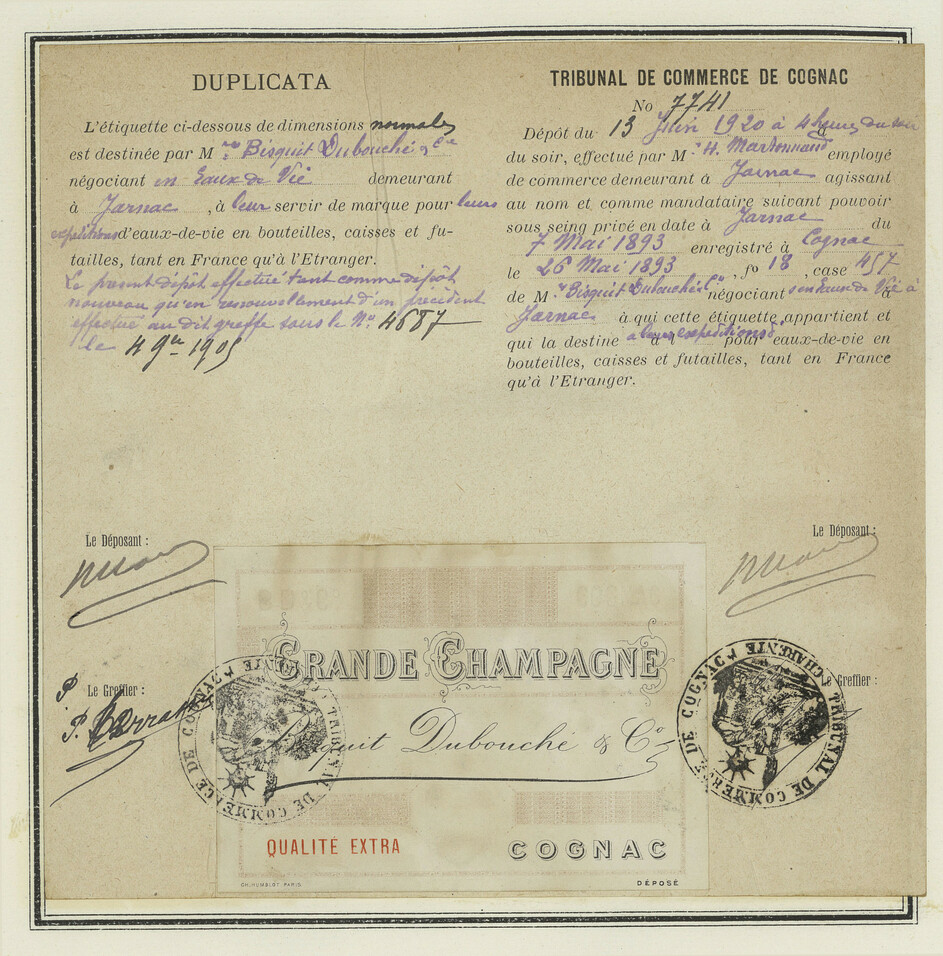 DUPLICATA
L'étiquette ci-dessous de dimensions normales
est destinée par Mrs Bisquit Dubouché & Cie
négociant en Eaux de Vie demeurant
à Jarnac, à leur servir de marque pour leurs
expéditions d'eaux-de-vie en bouteilles, caisses et fu-
tailles, tant en France qu'à l'Etranger.
Le présent dépôt effectué tant comme dépôt
nouveau qu'en renouvellement d'un précédent
effectué au dit greffe sous le No 4687
le 4 9bre 1905
TRIBUNAL DE COMMERCE DE COGNAC
No 7741
Dépôt du 13 Juin 1920 à 4 heures du soir
du soir, effectué par Mr H. Martonnaud employé
de commerce demeurant à Jarnac agissant
au nom et comme mandataire suivant pouvoir
sous seing privé en date à Jarnac du
7 Mai 1893 enregistré à Cognac
le 26 Mai 1893, fo 18, case 457
de Mrs Bisquit Dubouché & Cie négociants en Eaux de Vie à
Jarnac à qui cette étiquette appartient et
qui la destine à leurs expéditions d' pour eaux-de-vie en
bouteilles, caisses et futailles, tant en France
qu'à l'Etranger.
Le Déposant :
Le Déposant :
Le Greffier :
Le Greffier :
GRANDE CHAMPAGNE
Bisquit Dubouché & Co
QUALITÉ EXTRA
COGNAC
CH. HUMBLOT PARIS
DÉPOSÉ
TRIBUNAL DE COMMERCE DE COGNAC CHARENTE
TRIBUNAL DE COMMERCE DE COGNAC CHARENTE